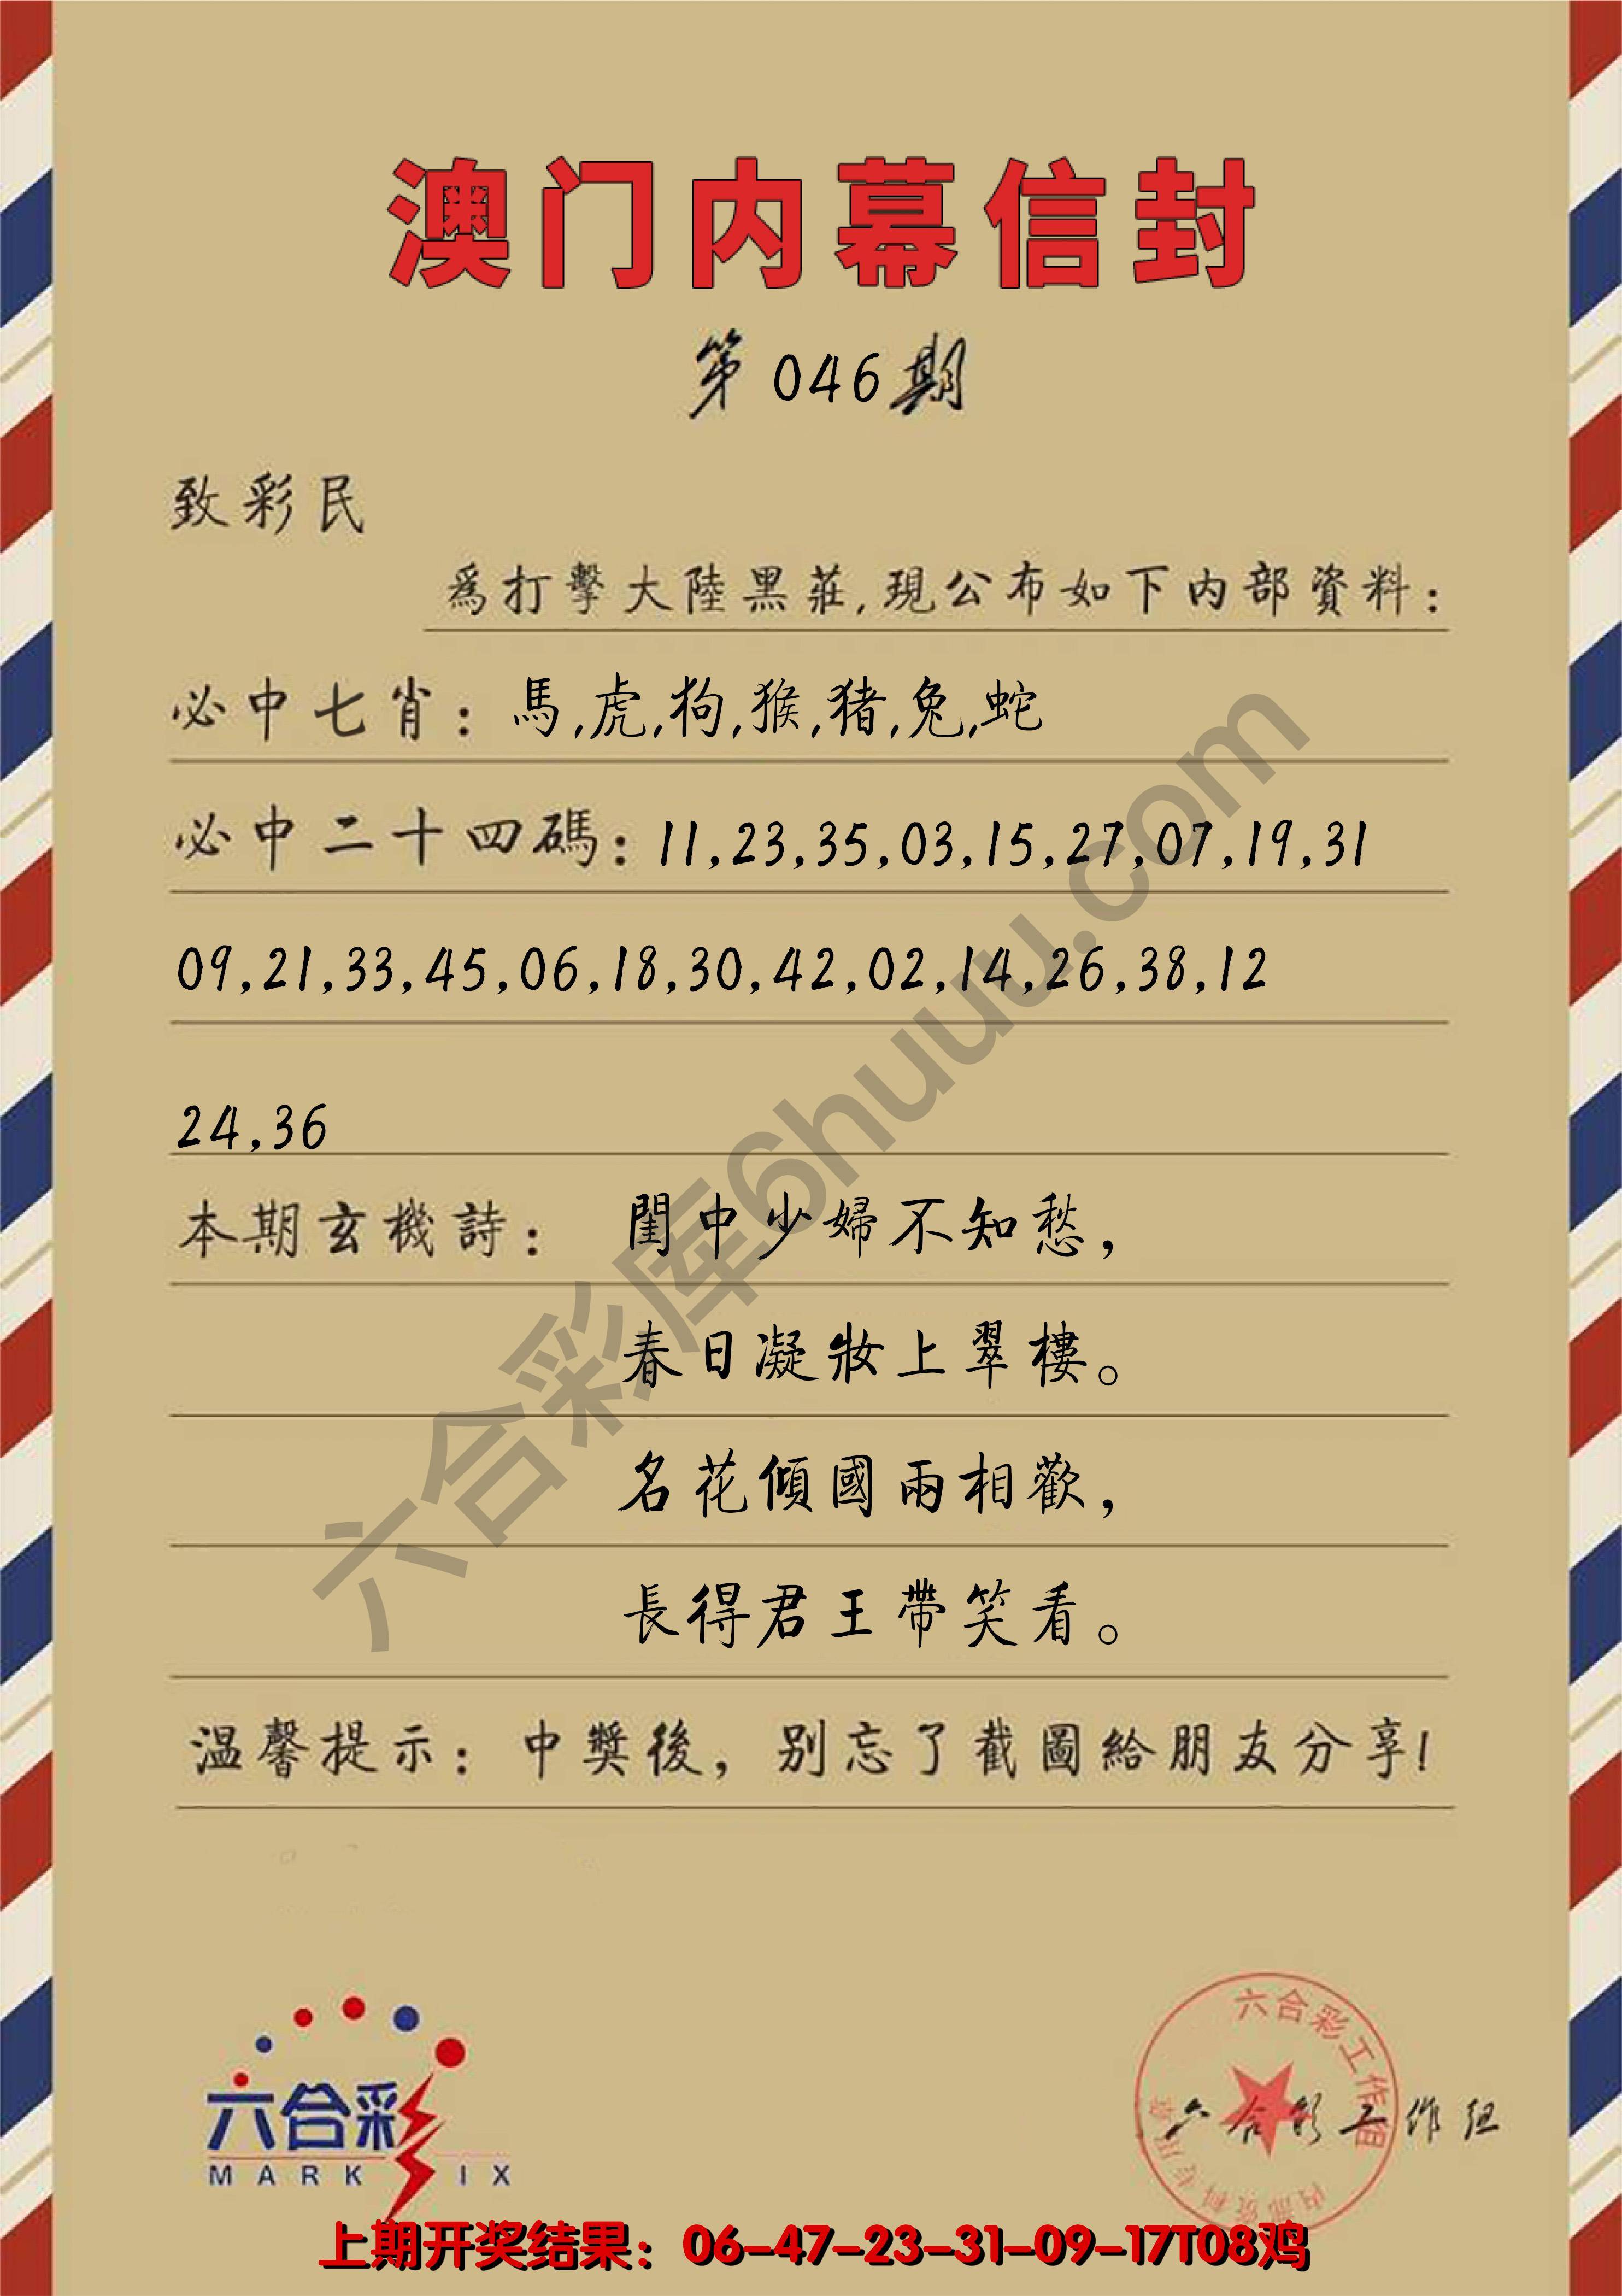 澳门内幕信封
第046期
致彩民
爲打擊大陸黑莊,現公布如下内部資料:
必中七肖: 馬,虎,狗,猴,猪,兔,蛇
必中二十四碼: 11,23,35,03,15,27,07,19,31
09,21,33,45,06,18,30,42,02,14,26,38,12
24,36
本期玄機詩: 閨中少婦不知愁,
春日凝妝上翠樓。
名花傾國兩相歡,
長得君王帶笑看。
温馨提示: 中獎後, 别忘了截圖給朋友分享!
六合彩库6huuu.com
六合彩
MARK IX
六合彩工作组
内部资料专用章
六合彩工作组
上期开奖结果: 06-47-23-31-09-17T08鸡